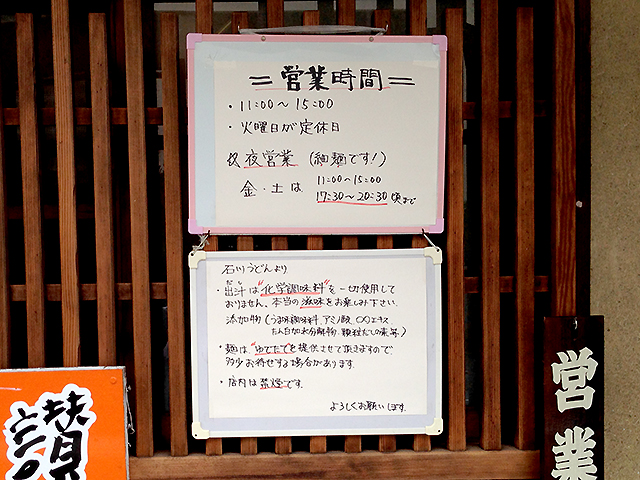 =営業時間=
・11:00〜15:00
・火曜日が定休日
夜営業(細麺です!)
金・土は 11:00〜15:00
17:30〜20:30頃まで
石川うどんより
・出汁は"化学調味料"を一切使用して
だし
おりません。本当の滋味をお楽しみ下さい。
添加物(うま味調味料、アミノ酸、〇〇エキス
たん白加水分解物、顆粒だしの素等)
・麺は"ゆでたて"を提供させて頂きますので、
多少お待せする場合があります。
・店内は禁煙です。
よろしくお願いします。
讃
扶
営業